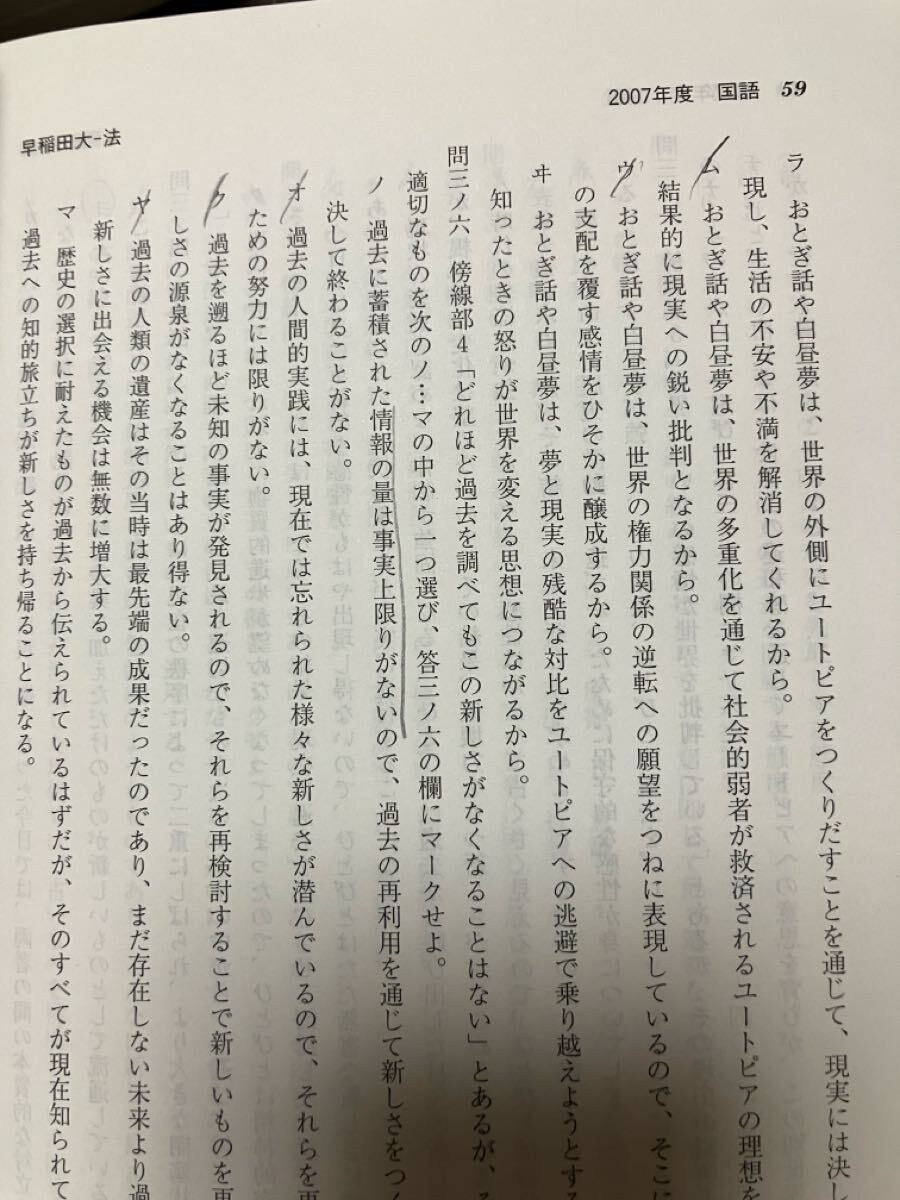 2007年度 国語 59
早稲田大-法
ラ おとぎ話や白昼夢は、世界の外側にユートピアをつくりだすことを通じて、現実には決し
現し、生活の不安や不満を解消してくれるから。
ム おとぎ話や白昼夢は、世界の多重化を通じて社会的弱者が救済されるユートピアの理想を
結果的に現実への鋭い批判となるから。
ウ おとぎ話や白昼夢は、世界の権力関係の逆転への願望をつねに表現しているので、そこに
の支配を覆す感情をひそかに醸成するから。
ヰ おとぎ話や白昼夢は、夢と現実の残酷な対比をユートピアへの逃避で乗り越えようとする
知ったときの怒りが世界を変える思想につながるから。
問三ノ六 傍線部4「どれほど過去を調べてもこの新しさがなくなることはない」とあるが、
適切なものを次のノ…マの中から一つ選び、答三ノ六の欄にマークせよ。
ノ 過去に蓄積された情報の量は事実上限りがないので、過去の再利用を通じて新しさをつく
決して終わることがない。
オ 過去の人間的実践には、現在では忘れられた様々な新しさが潜んでいるので、それらを再
ための努力には限りがない。
ク 過去を遡るほど未知の事実が発見されるので、それらを再検討することで新しいものを再
しさの源泉がなくなることはあり得ない。
ヤ 過去の人類の遺産はその当時は最先端の成果だったのであり、まだ存在しない未来より過
新しさに出会える機会は無数に増大する。
マ 歴史の選択に耐えたものが過去から伝えられているはずだが、そのすべてが現在知られて
過去への知的旅立ちが新しさを持ち帰ることになる。